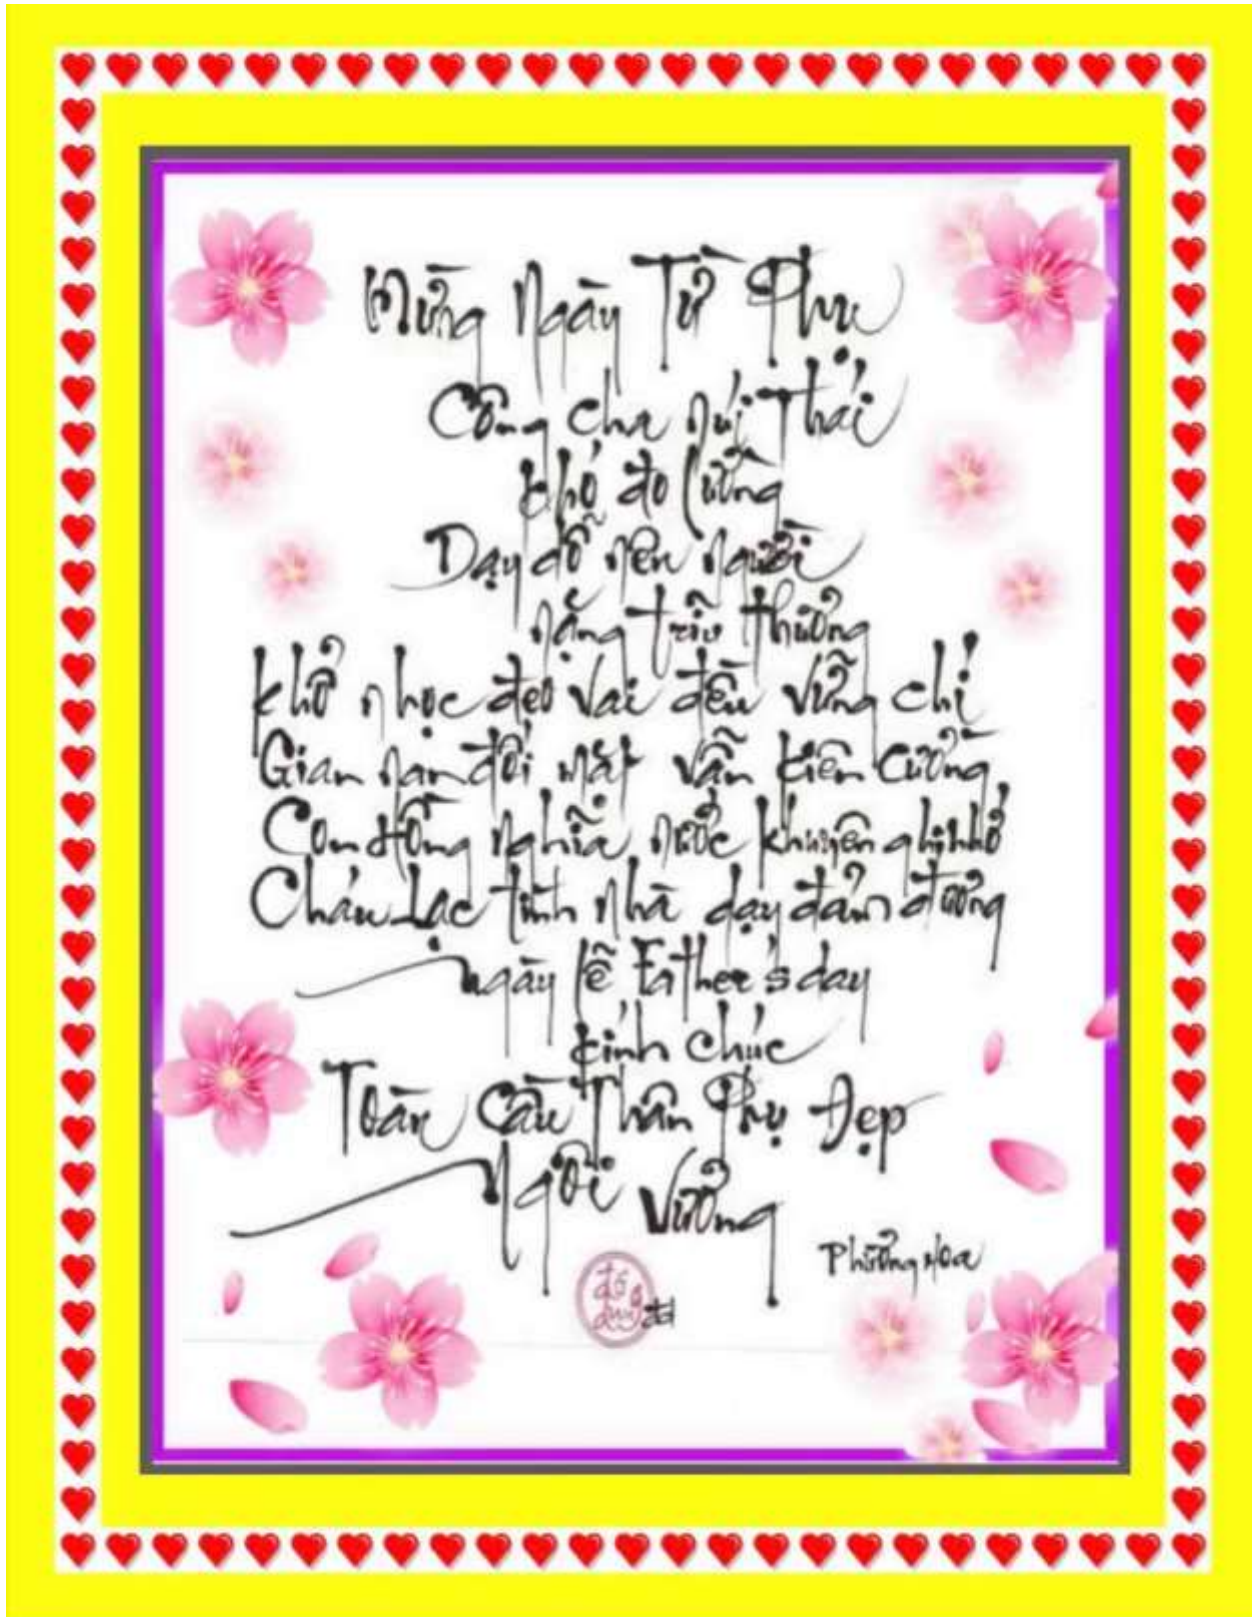 Mừng Ngày Từ Phụ
Công cha núi Thái
khó đo lường
Dạy dỗ nên người
nặng trĩu thương
khổ nhọc đẹo vai đều vững chí
Gian nan đối mặt vẫn kiên cường
Con Hồng nghĩa nước khuyên ghi nhớ
Cháu Lạc tình nhà dạy đảm đương
ngày lễ Father's day
kính chúc
Toàn Cầu Thân Phụ Đẹp
Ngôi Vương
Phương Hoa